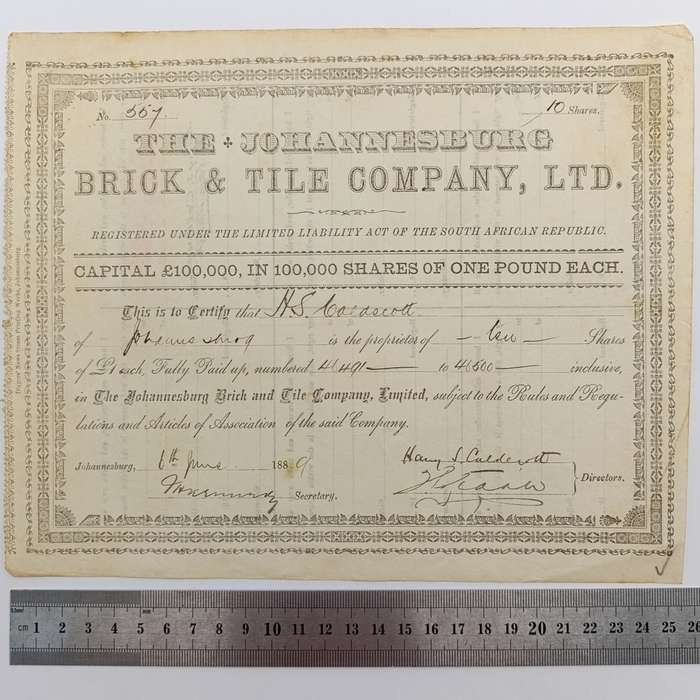 No. 557 10 Shares.
THE JOHANNESBURG
BRICK & TILE COMPANY, LTD.
REGISTERED UNDER THE LIMITED LIABILITY ACT OF THE SOUTH AFRICAN REPUBLIC.
CAPITAL £100,000, IN 100,000 SHARES OF ONE POUND EACH.
This is to Certify that H. S. Caldecott
of Johannesburg is the proprietor of ten Shares
of £1 each, Fully Paid up, numbered 41491 to 41500 inclusive,
in The Johannesburg Brick and Tile Company, Limited, subject to the Rules and Regu-
lations and Articles of Association of the said Company.
Johannesburg, 6th June 1889
Harry S. Caldecott
Secretary.
Directors.
cm 1 2 3 4 5 6 7 8 9 10 11 12 13 14 15 16 17 18 19 20 21 22 23 24 25 26